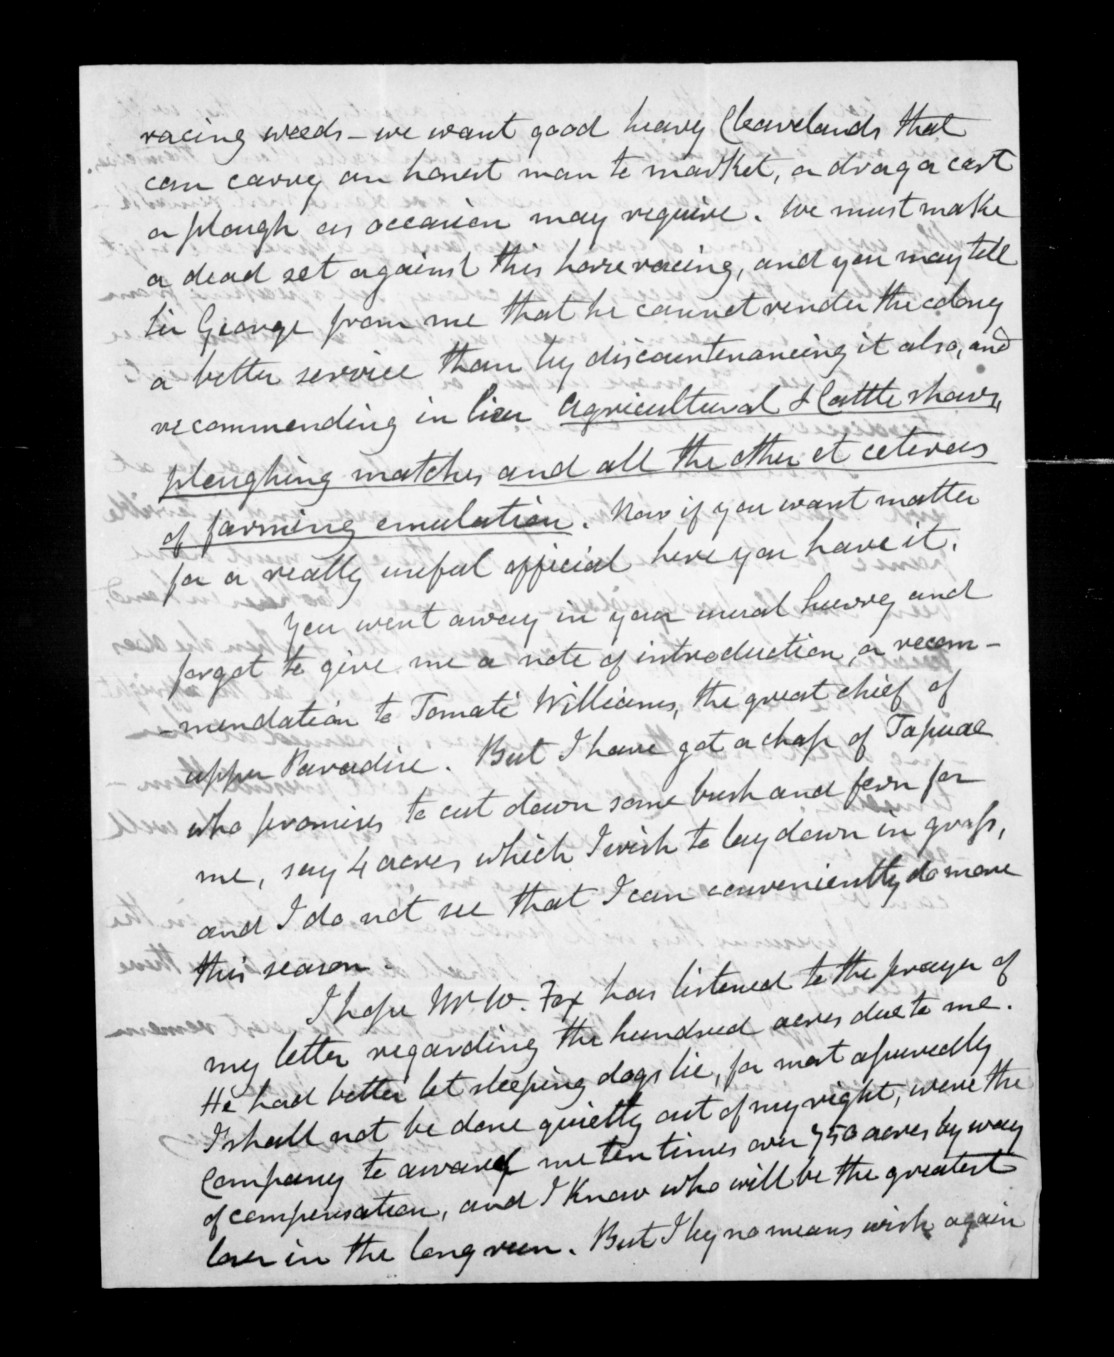 racing weeds – we want good heavy Clevelands that
can carry an honest man to market, or drag a cart
or plough as occasion may require. We must make
a dead set against this horse racing, and you may tell
Sir George from me that he cannot render the colony
a better service than by discountenancing it also, and
recommending in lieu Agricultural & Cattle shows,
ploughing matches and all the other et ceteras
of farming emulation. Now if you want matter
for a really useful official here you have it.
You went away in your usual hurry and
forgot to give me a note of introduction, or recom–
–mendation to Tomati Williams, the great chief of
upper Paradise. But I have got a chap of Tapuae
who promises to cut down some bush and fern for
me, say 4 acres which I wish to lay down in grass,
and I do not see that I can conveniently do more
this season.
I hope Mr W. Fox has listened to the prayer of
my letter regarding the hundred acres due to me.
He had better let sleeping dogs lie, for most assuredly
I shall not be done quietly out of my right, were the
Company to award me ten times over 750 acres by way
of compensation, and I know who will be the greatest
loser in the long run. But I by no means wish again